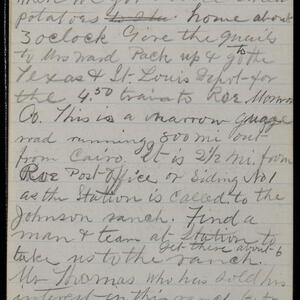 potatoes home about
3 oclock Gove the quails
to Mrs Ward Pack up & go to the
Texas & St. Louis Depot for
the 4.50 train to Roe Monroe
Co. This is a narrow guage
road running 800 mi out
from Cairo. It is 2½ mi. from
Roe Post-Office or Siding No 1
as the Station is called to the
Johnson ranch. Find a
man & team at Station to
Get there about 6
take us to the ranch.
Mr Thomas who has sold his
interest in this